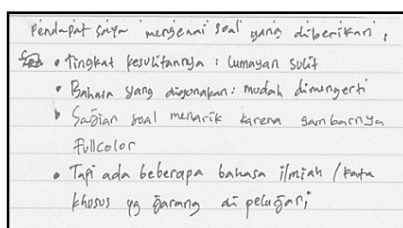 Pendapat saya mengenai soal yang diberikan,
• Tingkat kesulitannya : lumayan sulit
• Bahasa yang digunakan : mudah dimengerti
• Sajian soal menarik karena gambarnya
Fullcolor
• Tapi ada beberapa bahasa ilmiah / kata
khusus yg jarang di pelajari